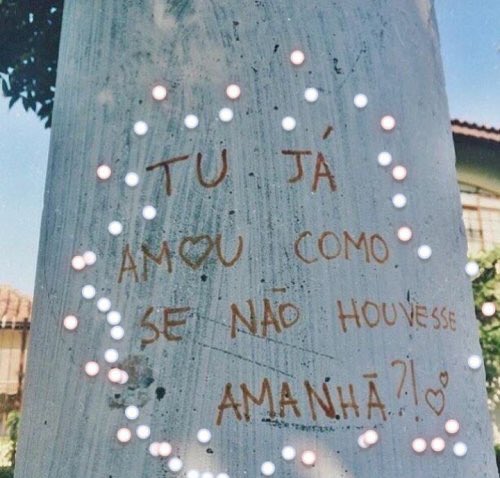 TU JÁ
AM♡U COMO
SE NÃO HOUVESSE
AMANHÃ?!♡♡